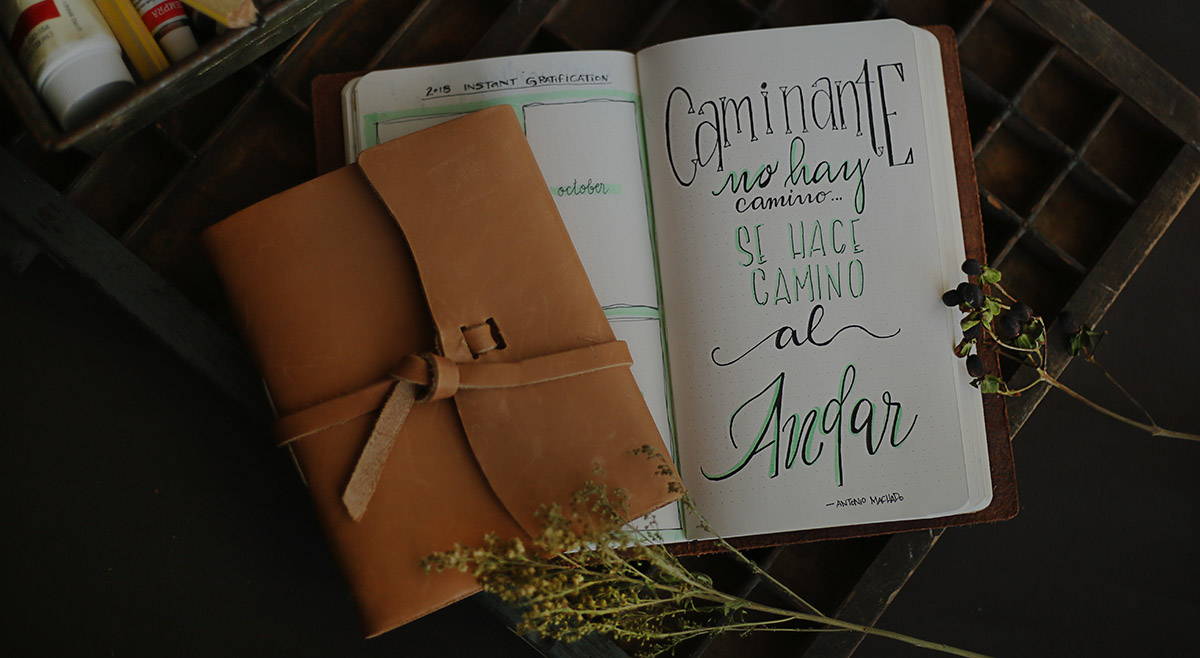 2018 INSTANT GRATIFICATION
october
CaminantE
no hay
camino...
SE HACE
CAMINO
al
Andar
— ANTONIO MACHADO